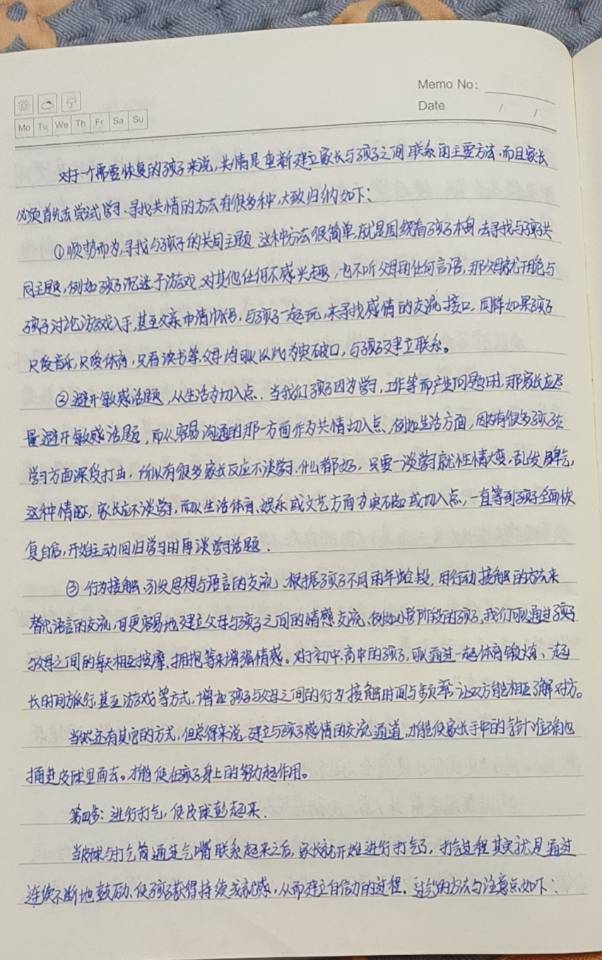 Memo No:
Mo Tu We Th Fr Sa Su
Date / /
对于一个需要恢复的孩子来说,共情是重新建立家长与孩子之间联系的主要方法,而且家长
必须首先去尝试学习、寻找共情的方法有很多种,大致归纳如下:
①顺势而为,寻找与孩子的共同主题 这种方法很简单,就是围绕着孩子本身,去寻找与孩子共
同主题,例如孩子沉迷于游戏,对其他任何不感兴趣,也不听父母的任何言语,那父母就可能与
孩子讨论游戏入手,甚至父亲申请帐号,与孩子一起玩,来寻找感情的交流接口,同样如果孩子
只爱音乐,只爱体育,只看读书等父母均可以以此为突破口,与孩子建立联系。
②避开敏感话题,从生活为切入点.当我们孩子因为学习,工作等而产生问题时,那家长应尽
量避开敏感话题,而从容易沟通的那一方面作为共情切入点,例如生活方面,因为有很多孩子在
学习方面深受打击,所以有很多家长反应不谈学习,什么都好,只要一谈学习就性情大变,乱发脾气,
这种情况,家长应不谈学习,而从生活体育、娱乐或文艺方面为突破口或切入点,一直等到孩子全面恢
复自信,开始主动回归学习时再谈学习话题.
③行为接触,引发思想与语言的交流.根据孩子不同的年龄段,用行动接触的方法来
替代语言的交流,可更容易地建立父母与孩子之间的情感交流、例如小学阶段的孩子,我们可以通过孩子
与父母之间的每天相互按摩、拥抱等来增强情感。对于初中、高中的孩子,可以通过一起体育锻炼、一起
长时间旅行,甚至游戏等方式,增加孩子与父母之间的行为接触时间与频率,让双方能相互了解对方。
当然还有其它的方式,但总得来说,建立与孩子感情的交流通道,才能使家长手中的打气筒准确地
插进皮球里面去。才能使在孩子身上的努力起作用。
第四步:进行打气,使皮球鼓起来.
当皮球与打气筒通过气嘴联系起来之后,家长就开始进行打气了,打气过程其实就是通过
连续不断地鼓励,使孩子获得持续成就感,从而建立自信的过程。打气的方法与注意点如下: